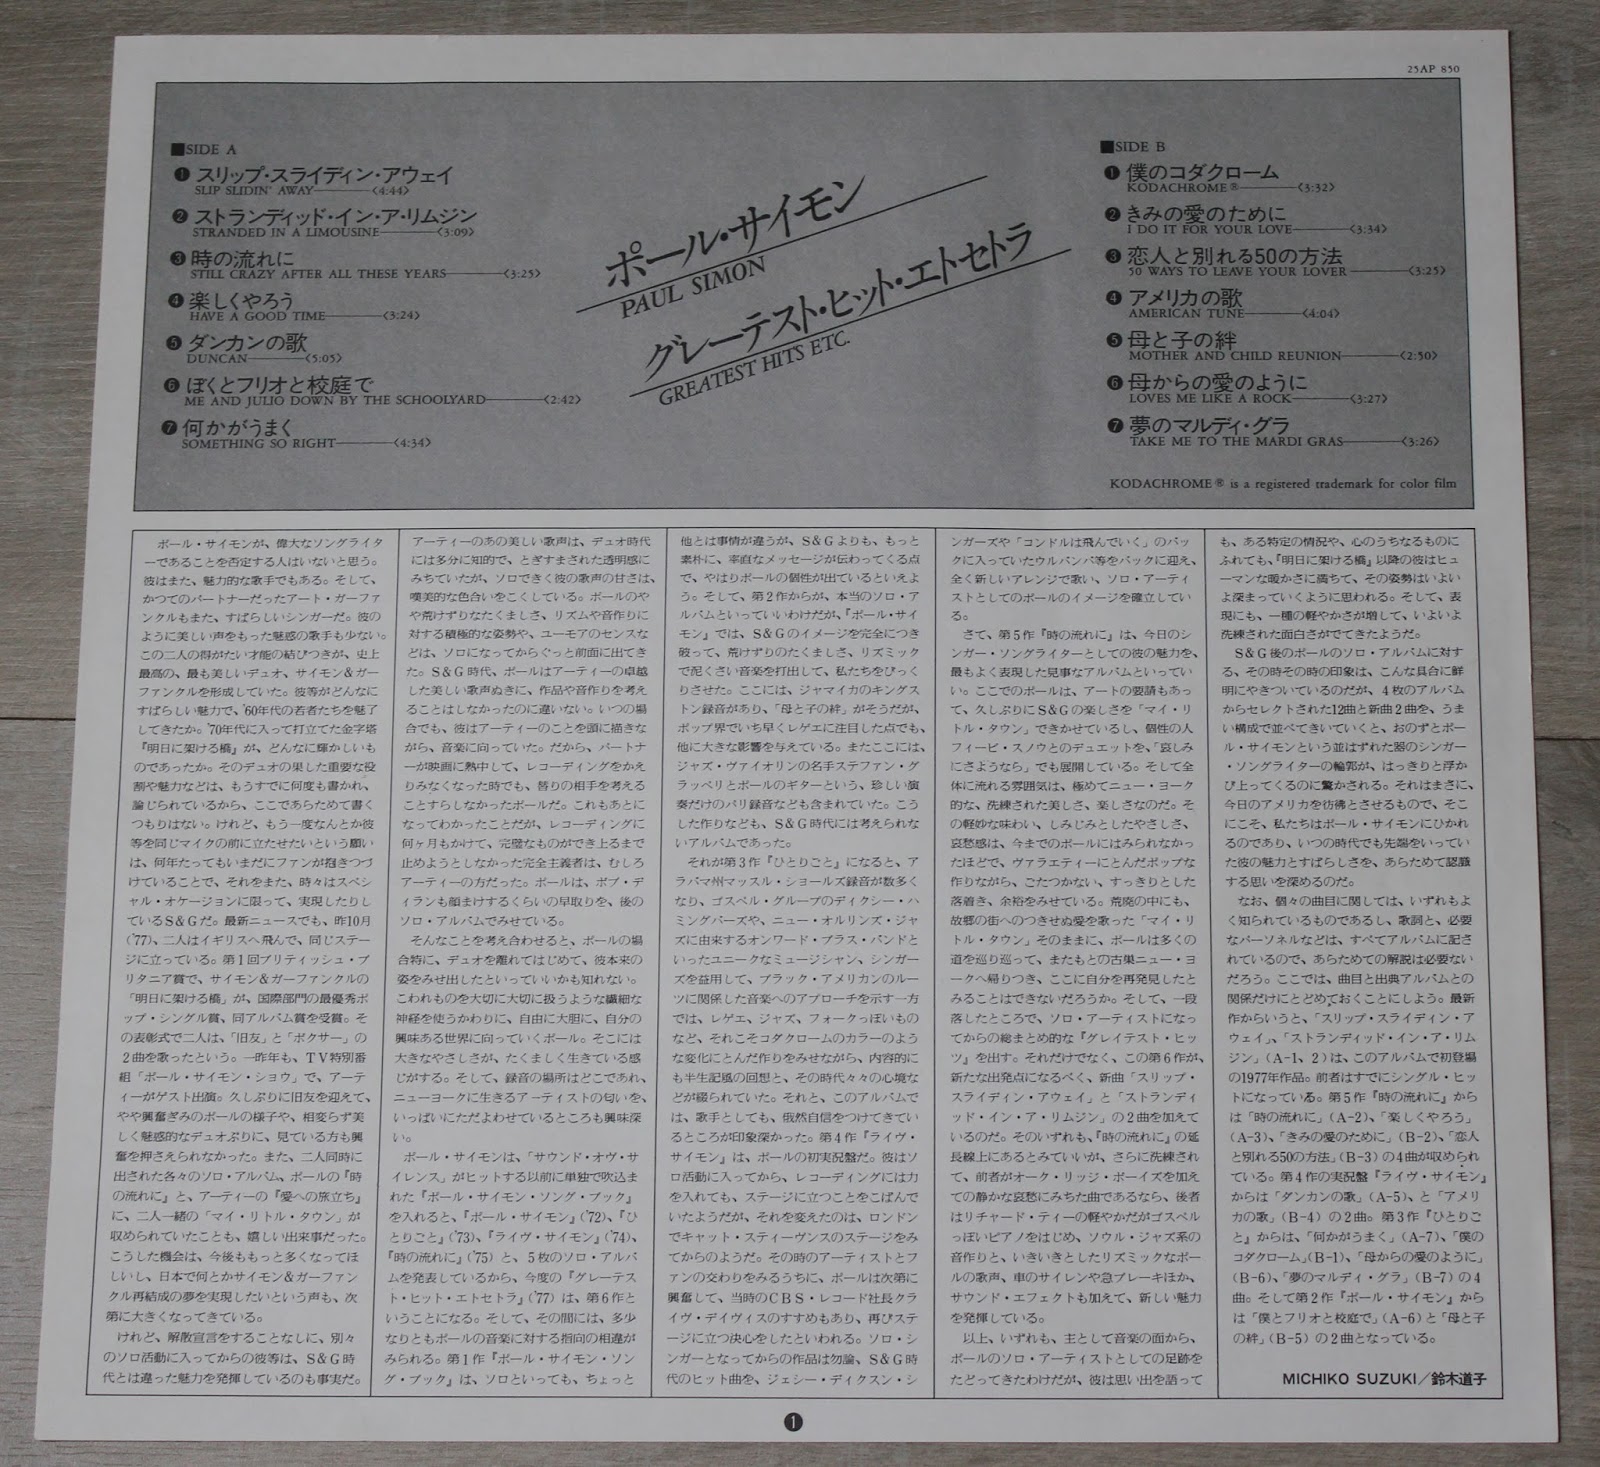 25AP 850
■SIDE A
❶ スリップ・スライディン・アウェイ
SLIP SLIDIN' AWAY———〈4:44〉
❷ ストランディッド・イン・ア・リムジン
STRANDED IN A LIMOUSINE———〈3:09〉
❸ 時の流れに
STILL CRAZY AFTER ALL THESE YEARS———〈3:25〉
❹ 楽しくやろう
HAVE A GOOD TIME———〈3:24〉
❺ ダンカンの歌
DUNCAN———〈5:05〉
❻ ぼくとフリオと校庭で
ME AND JULIO DOWN BY THE SCHOOLYARD———〈2:42〉
❼ 何かがうまく
SOMETHING SO RIGHT———〈4:34〉
ポール・サイモン
PAUL SIMON
グレーテスト・ヒット・エトセトラ
GREATEST HITS ETC.
■SIDE B
❶ 僕のコダクローム
KODACHROME®———〈3:32〉
❷ きみの愛のために
I DO IT FOR YOUR LOVE———〈3:34〉
❸ 恋人と別れる50の方法
50 WAYS TO LEAVE YOUR LOVER———〈3:25〉
❹ アメリカの歌
AMERICAN TUNE———〈4:04〉
❺ 母と子の絆
MOTHER AND CHILD REUNION———〈2:50〉
❻ 母からの愛のように
LOVES ME LIKE A ROCK———〈3:27〉
❼ 夢のマルディ・グラ
TAKE ME TO THE MARDI GRAS———〈3:26〉
KODACHROME® is a registered trademark for color film
ポール・サイモンが、偉大なソングライタ
ーであることを否定する人はいないと思う。
彼はまた、魅力的な歌手でもある。そして、
かつてのパートナーだったアート・ガーファ
ンクルもまた、すばらしいシンガーだ。彼の
ように美しい声をもった魅惑の歌手も少ない。
この二人の得がたい才能の結びつきが、史上
最高の、最も美しいデュオ、サイモン&ガー
ファンクルを形成していた。彼等がどんなに
すばらしい魅力で、'60年代の若者たちを魅了
してきたか。'70年代に入って打立てた金字塔
『明日に架ける橋』が、どんなに輝かしいも
のであったか。そのデュオの果した重要な役
割や魅力などは、もうすでに何度も書かれ、
論じられているから、ここであらためて書く
つもりはない。けれど、もう一度なんとか彼
等を同じマイクの前に立たせたいという願い
は、何年たってもいまだにファンが抱きつづ
けていることで、それをまた、時々はスペシ
ャル・オケージョンに限って、実現したりし
ているS&Gだ。最新ニュースでも、昨10月
('77)、二人はイギリスへ飛んで、同じステー
ジに立っている。第1回ブリティッシュ・ブ
リタニア賞で、サイモン&ガーファンクルの
「明日に架ける橋」が、国際部門の最優秀ポ
ップ・シングル賞、同アルバム賞を受賞。そ
の表彰式で二人は、「旧友」と「ボクサー」の
2曲を歌ったという。一昨年も、TV特別番
組「ポール・サイモン・ショウ」で、アーテ
ィーがゲスト出演。久しぶりに旧友を迎えて、
やや興奮ぎみのポールの様子や、相変らず美
しく魅惑的なデュオぶりに、見ている方も興
奮を押さえられなかった。また、二人同時に
出された各々のソロ・アルバム、ポールの『時
の流れに』と、アーティーの『愛への旅立ち』
に、二人一緒の「マイ・リトル・タウン」が
収められていたことも、嬉しい出来事だった。
こうした機会は、今後ももっと多くなってほ
しいし、日本で何とかサイモン&ガーファン
クル再結成の夢を実現したいという声も、次
第に大きくなってきている。
けれど、解散宣言をすることなしに、別々
のソロ活動に入ってからの彼等は、S&G時
代とは違った魅力を発揮しているのも事実だ。
アーティーのあの美しい歌声は、デュオ時代
には多分に知的で、とぎすまされた透明感に
みちていたが、ソロできく彼の歌声の甘さは、
嘆美的な色合いをこくしている。ポールのや
や荒けずりなたくましさ、リズムや音作りに
対する積極的な姿勢や、ユーモアのセンスな
どは、ソロになってからぐっと前面に出てき
た。S&G時代、ポールはアーティーの卓越
した美しい歌声ぬきに、作品や音作りを考え
ることはしなかったのに違いない。いつの場
合でも、彼はアーティーのことを頭に描きな
がら、音楽に向っていた。だから、パートナ
ーが映画に熱中して、レコーディングをかえ
りみなくなった時でも、替りの相手を考える
ことすらしなかったポールだ。これもあとに
なってわかったことだが、レコーディングに
何ヶ月もかけて、完璧なものができ上るまで
止めようとしなかった完全主義者は、むしろ
アーティーの方だった。ポールは、ボブ・デ
ィランも顔まけするくらいの早取りを、後の
ソロ・アルバムでみせている。
そんなことを考え合わせると、ポールの場
合特に、デュオを離れてはじめて、彼本来の
姿をみせ出したといっていいかも知れない。
こわれものを大切に大切に扱うような繊細な
神経を使うかわりに、自由に大胆に、自分の
興味ある世界に向っていくポール。そこには
大きなやさしさが、たくましく生きている感
じがする。そして、録音の場所はどこであれ、
ニューヨークに生きるアーティストの匂いを、
いっぱいにただよわせているところも興味深
い。
ポール・サイモンは、「サウンド・オヴ・サ
イレンス」がヒットする以前に単独で吹込ま
れた『ポール・サイモン・ソング・ブック』
を入れると、『ポール・サイモン』('72)、『ひ
とりごと』('73)、『ライヴ・サイモン』('74)、
『時の流れに』('75)と、5枚のソロ・アルバ
ムを発表しているから、今度の『グレーテス
ト・ヒット・エトセトラ』('77)は、第6作と
いうことになる。そして、その間には、多少
なりともポールの音楽に対する指向の相違が
みられる。第1作『ポール・サイモン・ソン
グ・ブック』は、ソロといっても、ちょっと
他とは事情が違うが、S&Gよりも、もっと
素朴に、率直なメッセージが伝わってくる点
で、やはりポールの個性が出ているといえよ
う。そして、第2作からが、本当のソロ・ア
ルバムといっていいわけだが、『ポール・サイ
モン』では、S&Gのイメージを完全につき
破って、荒けずりのたくましさ、リズミック
で泥くさい音楽を打出して、私たちをびっく
りさせた。ここには、ジャマイカのキングス
トン録音があり、「母と子の絆」がそうだが、
ポップ界でいち早くレゲエに注目した点でも、
他に大きな影響を与えている。またここには、
ジャズ・ヴァイオリンの名手ステファン・グ
ラッペリとポールのギターという、珍しい演
奏だけのパリ録音なども含まれていた。こう
した作りなども、S&G時代には考えられな
いアルバムであった。
それが第3作『ひとりごと』になると、ア
ラバマ州マッスル・ショールズ録音が数多く
なり、ゴスペル・グループのディクシー・ハ
ミングバーズや、ニュー・オルリンズ・ジャ
ズに由来するオンワード・ブラス・バンドと
いったユニークなミュージシャン、シンガー
ズを益用して、ブラック・アメリカンのルー
ツに関係した音楽へのアプローチを示す一方
では、レゲエ、ジャズ、フォークっぽいもの
など、それこそコダクロームのカラーのよう
な変化にとんだ作りをみせながら、内容的に
も半生記風の回想と、その時代々々の心境な
どが綴られていた。それと、このアルバムで
は、歌手としても、俄然自信をつけてきてい
るところが印象深かった。第4作『ライヴ・
サイモン』は、ポールの初実況盤だ。彼はソ
ロ活動に入ってから、レコーディングには力
を入れても、ステージに立つことをこばんで
いたようだが、それを変えたのは、ロンドン
でキャット・スティーヴンスのステージをみ
てからのようだ。その時のアーティストとフ
ァンの交わりをみるうちに、ポールは次第に
興奮して、当時のCBS・レコード社長クラ
イヴ・デイヴィスのすすめもあり、再びステ
ージに立つ決心をしたといわれる。ソロ・シ
ンガーとなってからの作品は勿論、S&G時
代のヒット曲を、ジェシー・ディクスン・シ
ンガーズや「コンドルは飛んでいく」のバッ
クに入っていたウルバンバ等をバックに迎え、
全く新しいアレンジで歌い、ソロ・アーティ
ストとしてのポールのイメージを確立してい
る。
さて、第5作『時の流れに』は、今日のシ
ンガー・ソングライターとしての彼の魅力を、
最もよく表現した見事なアルバムといってい
い。ここでのポールは、アートの要請もあっ
て、久しぶりにS&Gの楽しさを「マイ・リ
トル・タウン」できかせているし、個性の人
フィービ・スノウとのデュエットを、「哀しみ
にさようなら」でも展開している。そして全
体に流れる雰囲気は、極めてニュー・ヨーク
的な、洗練された美しさ、楽しさなのだ。そ
の軽妙な味わい、しみじみとしたやさしさ、
哀愁感は、今までのポールにはみられなかっ
たほどで、ヴァラエティーにとんだポップな
作りながら、ごたつかない、すっきりとした
落着き、余裕をみせている。荒廃の中にも、
故郷の街へのつきせぬ愛を歌った「マイ・リ
トル・タウン」そのままに、ポールは多くの
道を巡り巡って、またもとの古巣ニュー・ヨ
ークへ帰りつき、ここに自分を再発見したと
みることはできないだろうか。そして、一段
落したところで、ソロ・アーティストになっ
てからの総まとめ的な『グレイテスト・ヒッ
ツ』を出す。それだけでなく、この第6作が、
新たな出発点になるべく、新曲「スリップ・
スライディン・アウェイ」と「ストランディ
ッド・イン・ア・リムジン」の2曲を加えて
いるのだ。そのいずれも、『時の流れに』の延
長線上にあるとみていいが、さらに洗練され
て、前者がオーク・リッジ・ボーイズを加え
ての静かな哀愁にみちた曲であるなら、後者
はリチャード・ティーの軽やかだがゴスペル
っぽいピアノをはじめ、ソウル・ジャズ系の
音作りと、いきいきとしたリズミックなポー
ルの歌声、車のサイレンや急ブレーキほか、
サウンド・エフェクトも加えて、新しい魅力
を発揮している。
以上、いずれも、主として音楽の面から、
ポールのソロ・アーティストとしての足跡を
たどってきたわけだが、彼は思い出を語って
も、ある特定の情況や、心のうちなるものに
ふれても、『明日に架ける橋』以降の彼はヒュ
ーマンな暖かさに満ちて、その姿勢はいよい
よ深まっていくように思われる。そして、表
現にも、一種の軽やかさが増して、いよいよ
洗練された面白さがでてきたようだ。
S&G後のポールのソロ・アルバムに対す
る、その時その時の印象は、こんな具合に鮮
明にやきついているのだが、4枚のアルバム
からセレクトされた12曲と新曲2曲を、うま
い構成で並べてきいていくと、おのずとポー
ル・サイモンという並はずれた器のシンガー
・ソングライターの輪郭が、はっきりと浮か
び上ってくるのに驚かされる。それはまさに、
今日のアメリカを彷彿とさせるもので、そこ
にこそ、私たちはポール・サイモンにひかれ
るのであり、いつの時代でも先端をいってい
た彼の魅力とすばらしさを、あらためて認識
する思いを深めるのだ。
なお、個々の曲目に関しては、いずれもよ
く知られているものであるし、歌詞と、必要
なパーソネルなどは、すべてアルバムに記さ
れているので、あらためての解説は必要ない
だろう。ここでは、曲目と出典アルバムとの
関係だけにとどめておくことにしよう。最新
作からいうと、「スリップ・スライディン・ア
ウェイ」、「ストランディッド・イン・ア・リム
ジン」(A-1、2)は、このアルバムで初登場
の1977年作品。前者はすでにシングル・ヒッ
トになっている。第5作『時の流れに』から
は「時の流れに」(A-2)、「楽しくやろう」
(A-3)、「きみの愛のために」(B-2)、「恋人
と別れる50の方法」(B-3)の4曲が収められ
ている。第4作の実況盤『ライヴ・サイモン』
からは「ダンカンの歌」(A-5)、と「アメリ
カの歌」(B-4)の2曲。第3作『ひとりご
と』からは、「何かがうまく」(A-7)、「僕の
コダクローム」(B-1)、「母からの愛のように」
(B-6)、「夢のマルディ・グラ」(B-7)の4
曲。そして第2作『ポール・サイモン』から
は「僕とフリオと校庭で」(A-6)と「母と子
の絆」(B-5)の2曲となっている。
MICHIKO SUZUKI／鈴木道子
❶